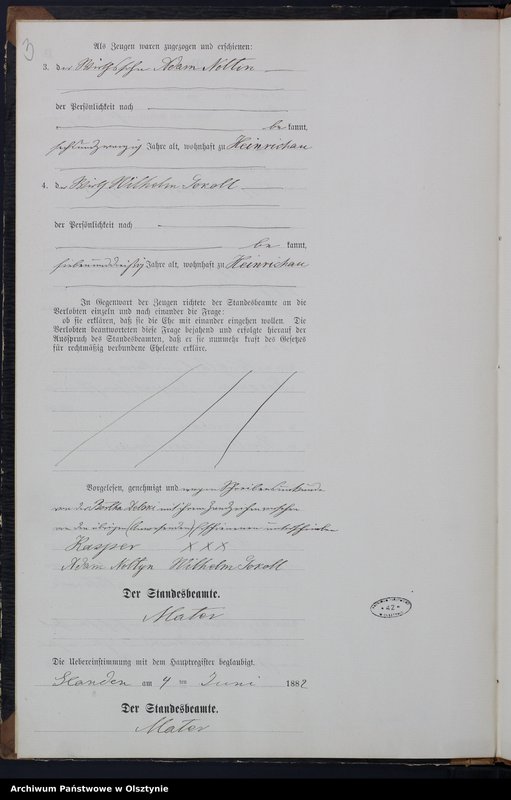 3
Als Zeugen waren zugezogen und erschienen:
3. der Wirthssohn Adam Noltin
der Persönlichkeit nach
be kannt,
sechsundzwanzig Jahre alt, wohnhaft zu Heinrichau
4. der Wirth Wilhelm Sokoll
der Persönlichkeit nach
be kannt,
siebenunddreißig Jahre alt, wohnhaft zu Heinrichau
In Gegenwart der Zeugen richtete der Standesbeamte an die
Verlobten einzeln und nach einander die Frage:
ob sie erklären, daß sie die Ehe mit einander eingehen wollen. Die
Verlobten beantworteten diese Frage bejahend und erfolgte hierauf der
Ausspruch des Standesbeamten, daß er sie nunmehr kraft des Gesetzes
für rechtmäßig verbundene Eheleute erkläre.
Vorgelesen, genehmigt und wegen Schreibensunkunde
von der Bertha mit ihrem Handzeichen versehen
von den übrigen Erschienenen unterschrieben
Kasper XXX
Adam Noltyn Wilhelm Sokoll
Der Standesbeamte.
Mater
Die Uebereinstimmung mit dem Hauptregister beglaubigt.
am 9 ten Juni 1882
Der Standesbeamte.
Mater
Archiwum Państwowe w Olsztynie